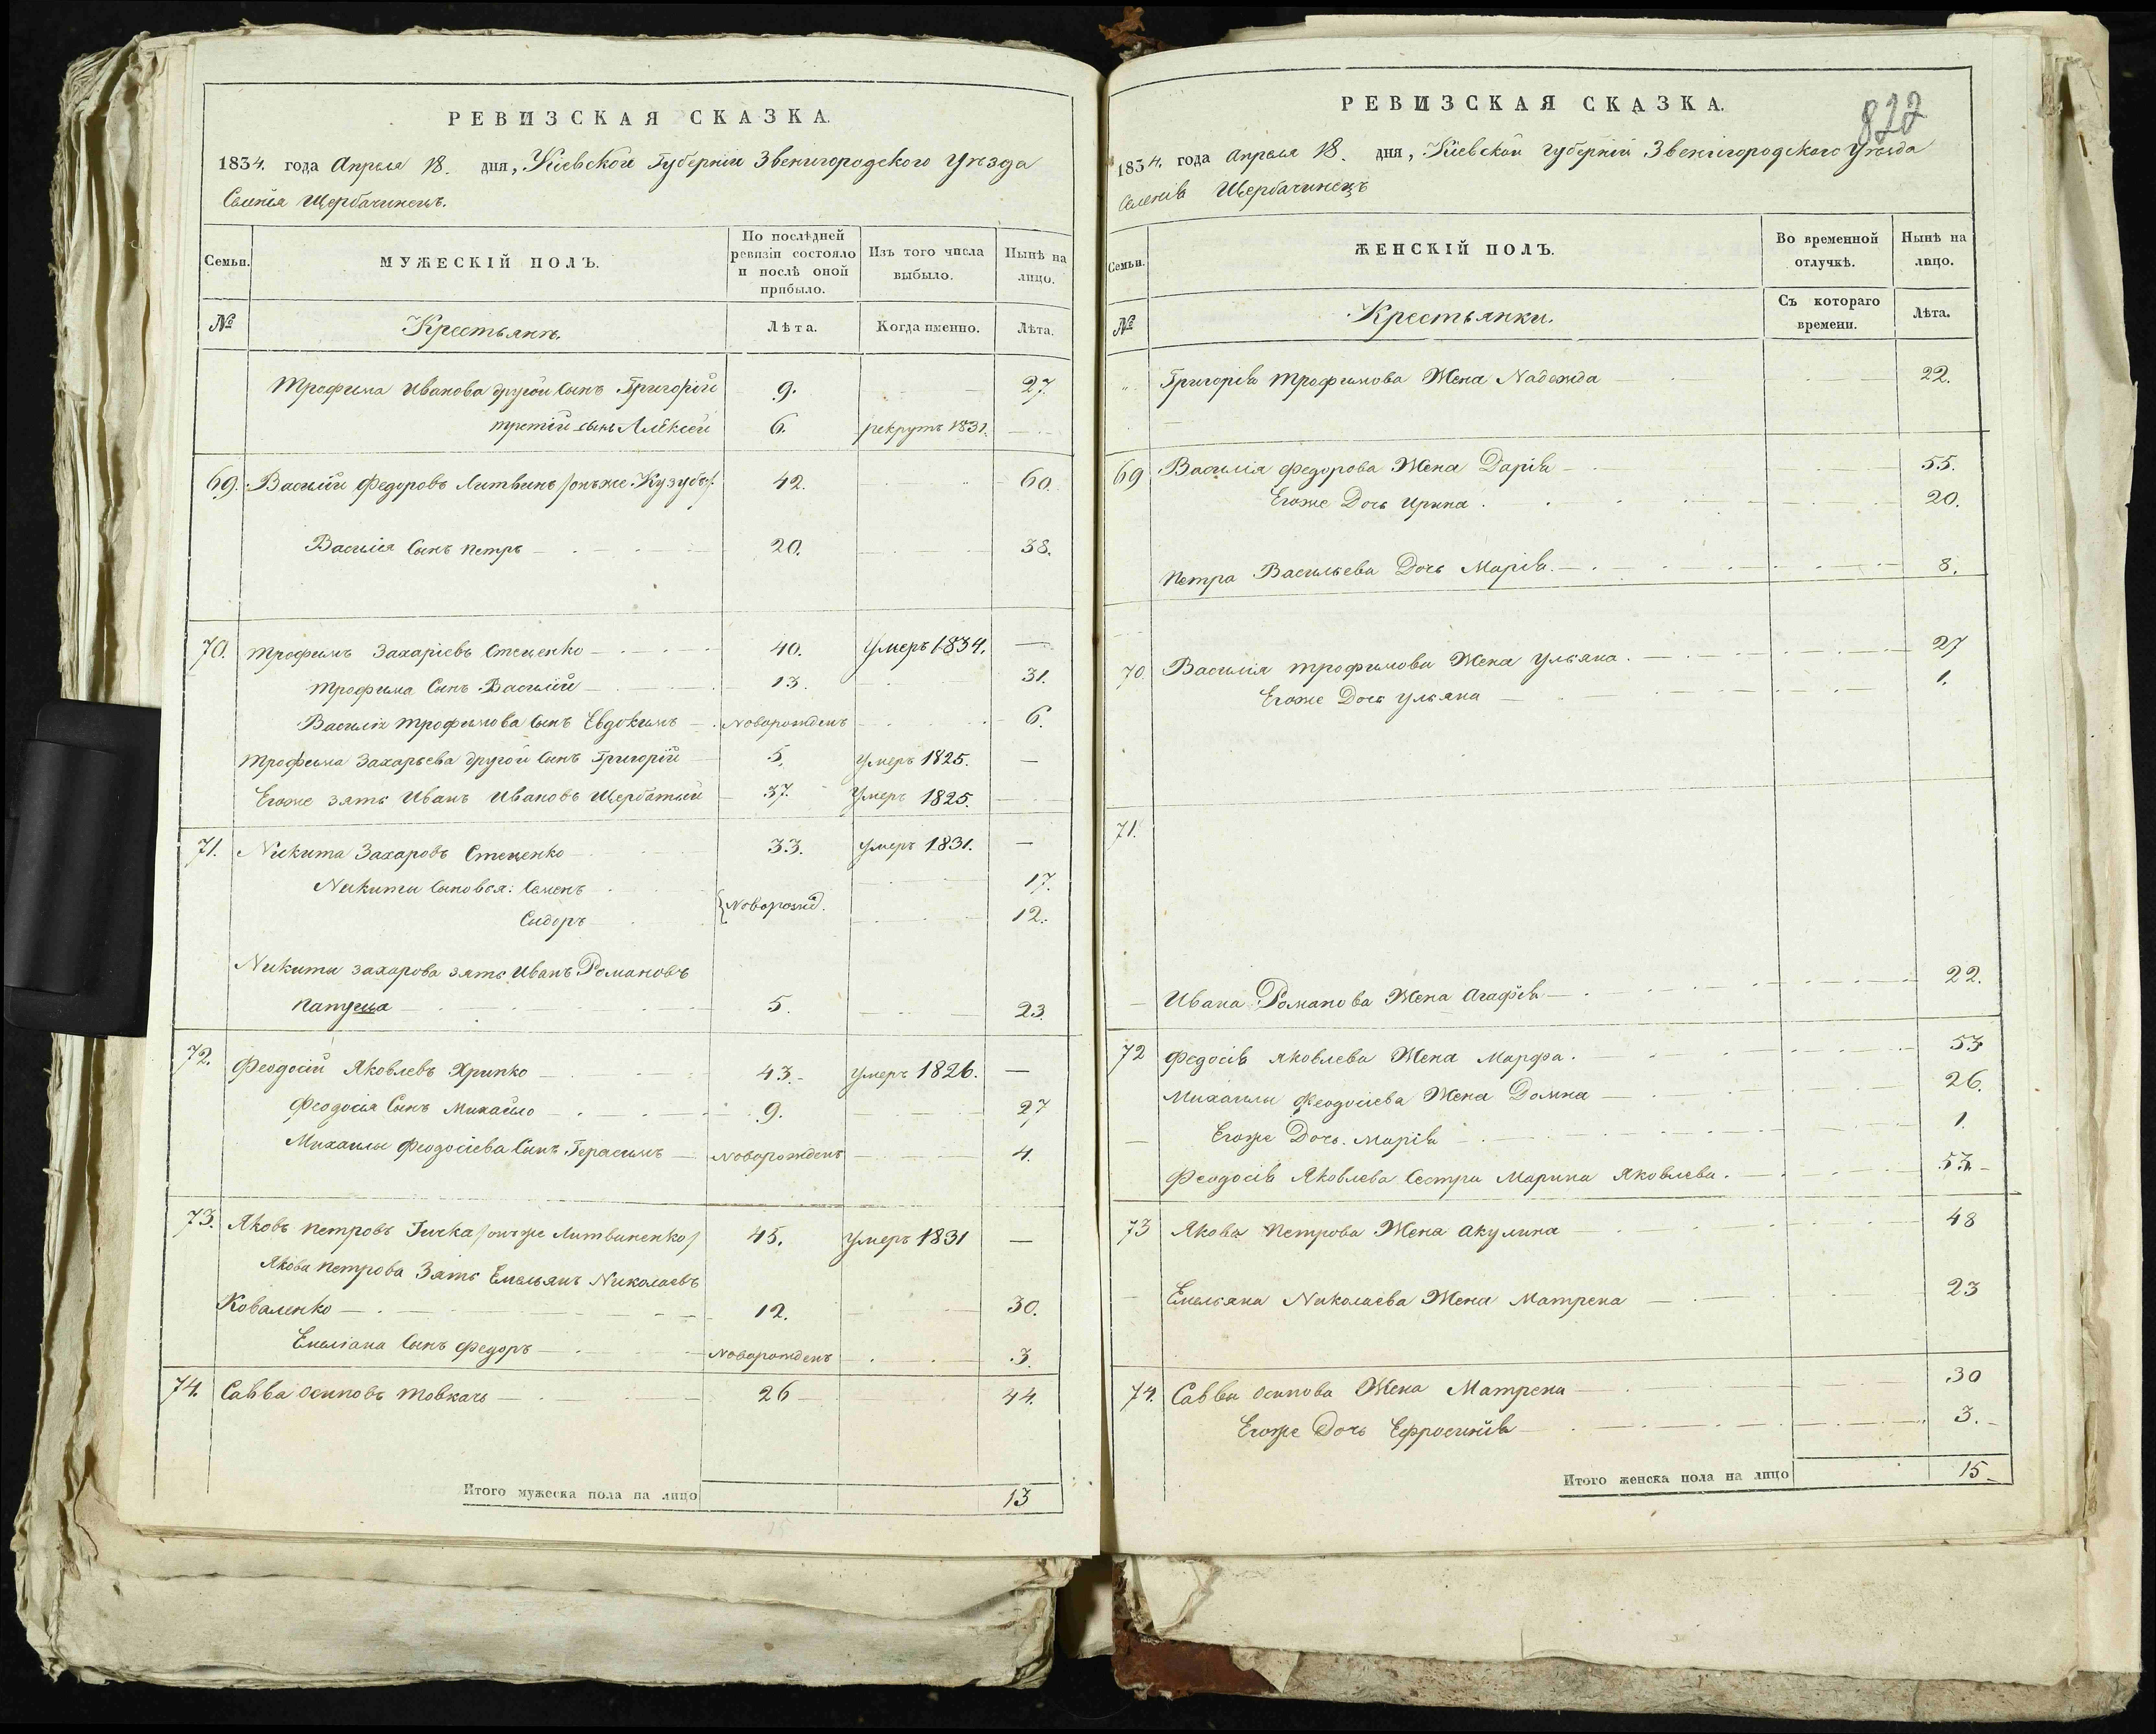 РЕВИЗСКАЯ СКАЗКА.
1834. года Апреля 18. дня, Кіевской Губерніи Звенигородского Уѣзда
Селенія Щербачинецъ.
Семьи. МУЖЕСКІЙ ПОЛЪ. По послѣдней ревизіи состояло и послѣ оной прибыло. Изъ того числа выбыло. Нынѣ на лицо.
№ Крестьянѣ. Лѣта. Когда именно. Лѣта.
Трофима Иванова другой Сынъ Григорій 9. 27.
третій сынъ Алексей 6. рекрутъ 1831.
69. Василій Федоровъ Литвинъ /онъже Кузубъ/. 42. 60.
Василія Сынъ Петръ 20. 38.
70. Трофимъ Захаріевъ Стеценко 40. Умеръ 1834. —
Трофима Сынъ Василій 13. 31.
Василія Трофимова Сынъ Евдокимъ Новорожденъ 6.
Трофима Захарьева другой Сынъ Григорій 5. умеръ 1825. —
Егоже зять Иванъ Ивановъ Щербатый 37. Умеръ 1825.
71. Никита Захаровъ Стеценко 33. умеръ 1831. —
Никиты Сыновья: Семенъ 17.
{Саворожд.
Сидоръ 12.
Никиты захарова зять Иванъ Романовъ
5. 23.
72. Феодосій Яковлевъ Хрипко 43. умеръ 1826. —
Феодосія Сынъ Михайло 9. 27
Михаилы Феодосіева Сынъ Герасимъ Новорожденъ 4.
73. Яковъ Петровъ /онъже Литвиненко/ 45. умеръ 1831 —
Якова Петрова Зять Емельянъ Николаевъ
Коваленко 12. 30.
Емеліана Сынъ Федоръ Новорожденъ 3.
74. Савва Осиповъ Товкачъ 26 44.
Итого мужеска пола на лицо 13
822
РЕВИЗСКАЯ СКАЗКА.
1834. года Апреля 18. дня, Кіевской Губерніи Звенигородского Уѣзда
Селенія Щербачинецъ
Семьи. ЖЕНСКІЙ ПОЛЪ. Во временной отлучкѣ. Нынѣ на лицо.
№ Крестьянки. Съ котораго времени. Лѣта.
Григорія Трофимова Жена Надежда 22.
69 Василія Федорова Жена Дарія 55.
Егоже Дочь Ирина 20.
Петра Васильева Дочь Марія 8.
70. Василія Трофимова Жена Ульяна 27
Егоже Дочь Ульяна 1.
71.
Ивана Романова Жена Агафія 22.
72 Федосія Яковлева Жена Марфа 53
Михаилы Феодосіева Жена Домна 26.
Егоже Дочь Марія 1.
Феодосія Яковлева Сестра Марина Яковлева 53.
73 Якова Петрова Жена Акулина 48
Емельяна Николаева Жена Матрена 23
74. Саввы Осипова Жена Матрена 30
Егоже Дочь Ефросинія 3.
Итого женска пола на лицо 15